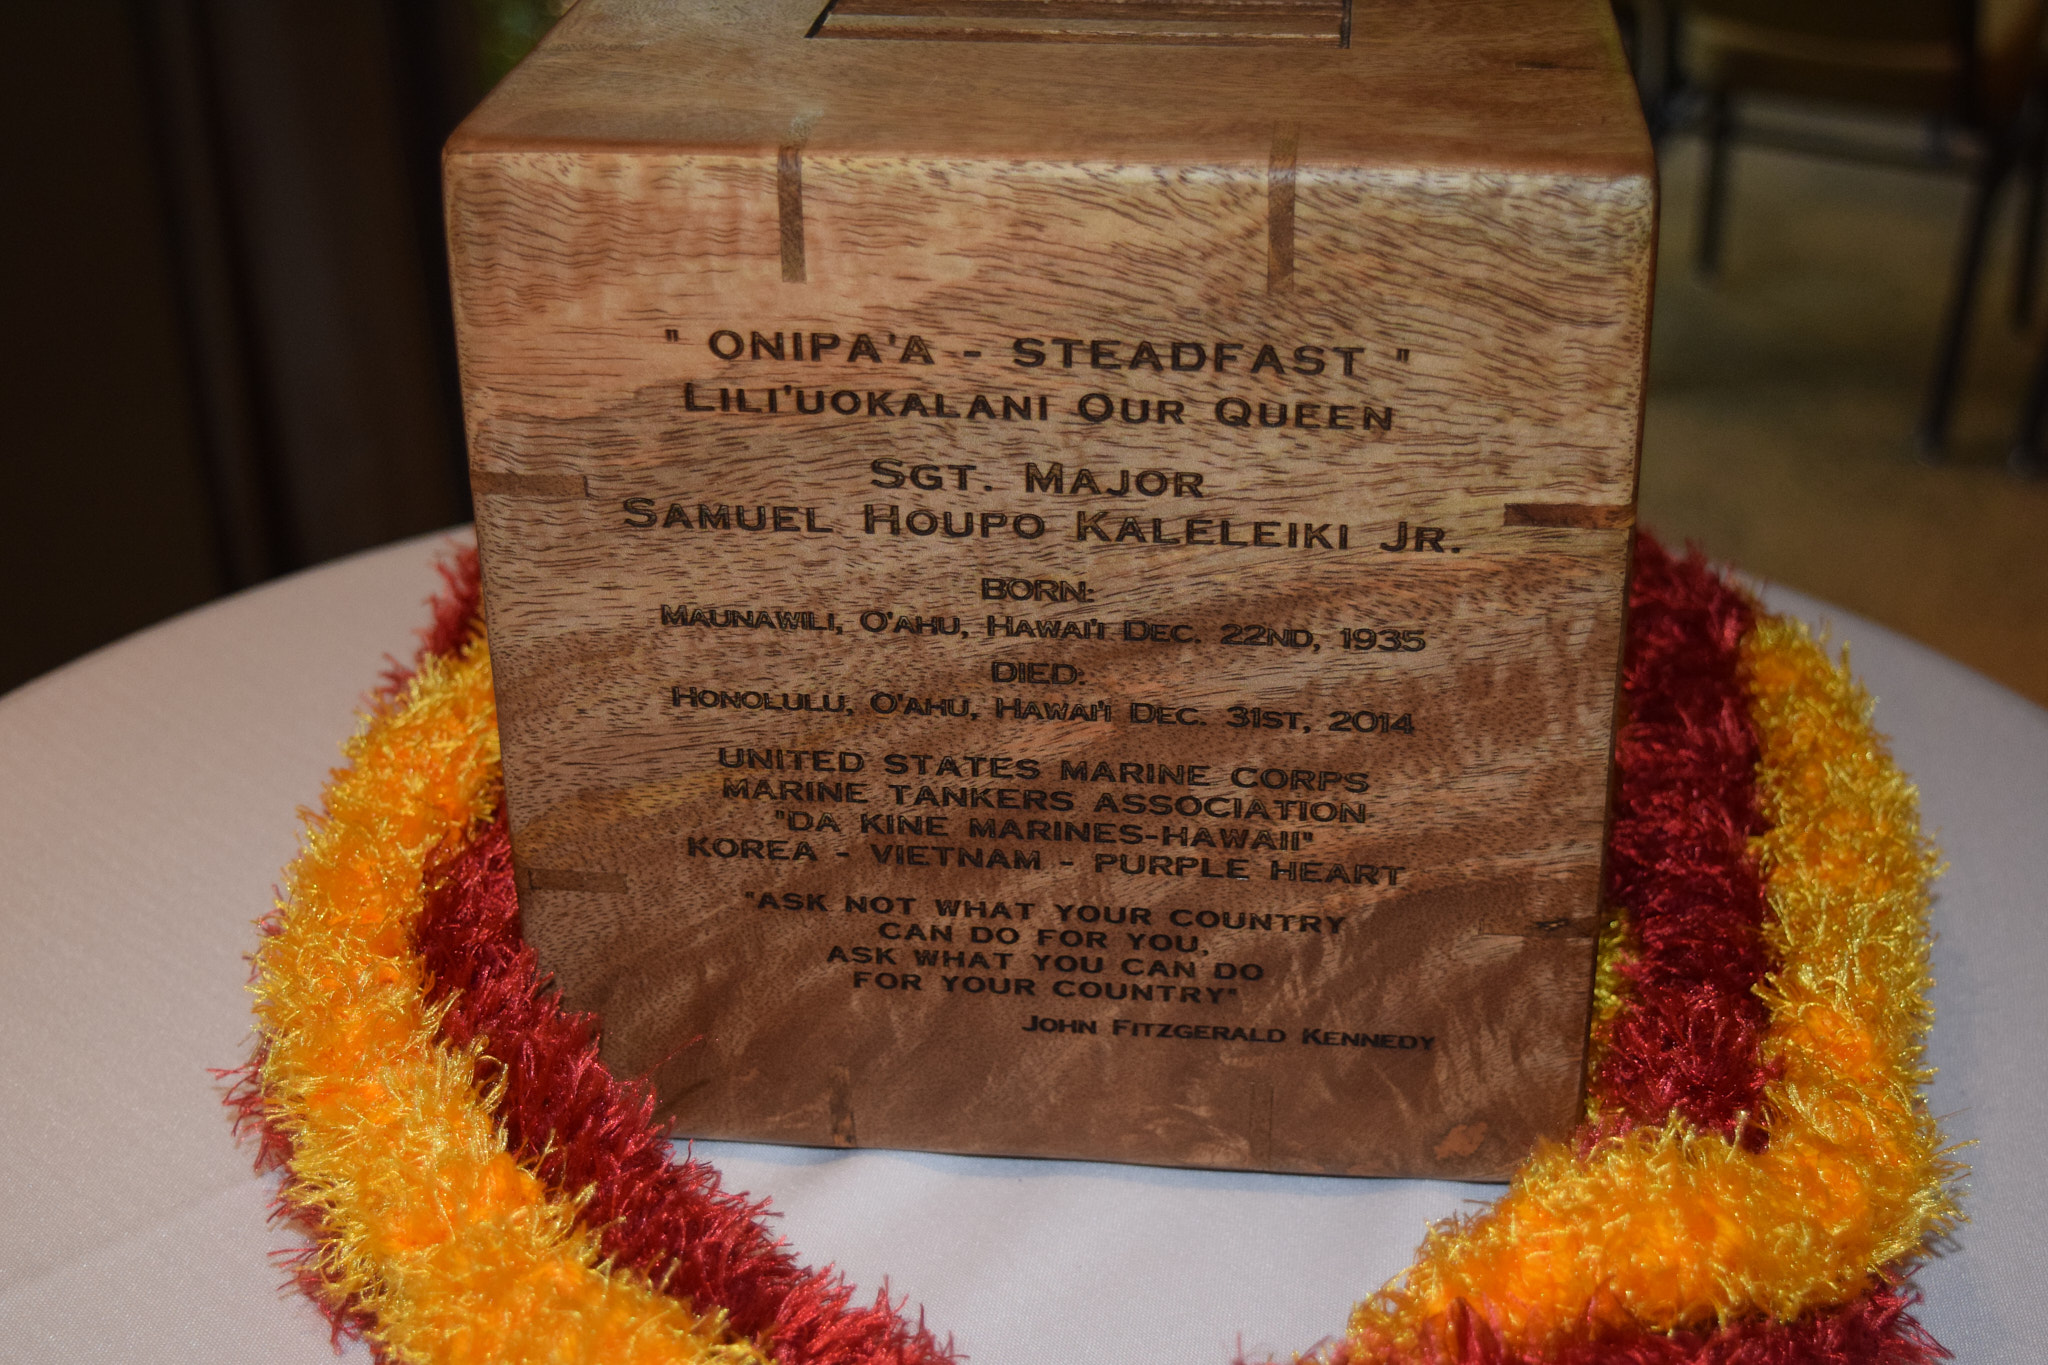 " ONIPA'A - STEADFAST "
LILI'UOKALANI OUR QUEEN
SGT. MAJOR
SAMUEL HOUPO KALELEIKI JR.
BORN:
MAUNAWILI, O'AHU, HAWAI'I DEC. 22ND, 1935
DIED:
HONOLULU, O'AHU, HAWAI'I DEC. 31ST, 2014
UNITED STATES MARINE CORPS
MARINE TANKERS ASSOCIATION
"DA KINE MARINES-HAWAII"
KOREA - VIETNAM - PURPLE HEART
"ASK NOT WHAT YOUR COUNTRY
CAN DO FOR YOU,
ASK WHAT YOU CAN DO
FOR YOUR COUNTRY"
JOHN FITZGERALD KENNEDY